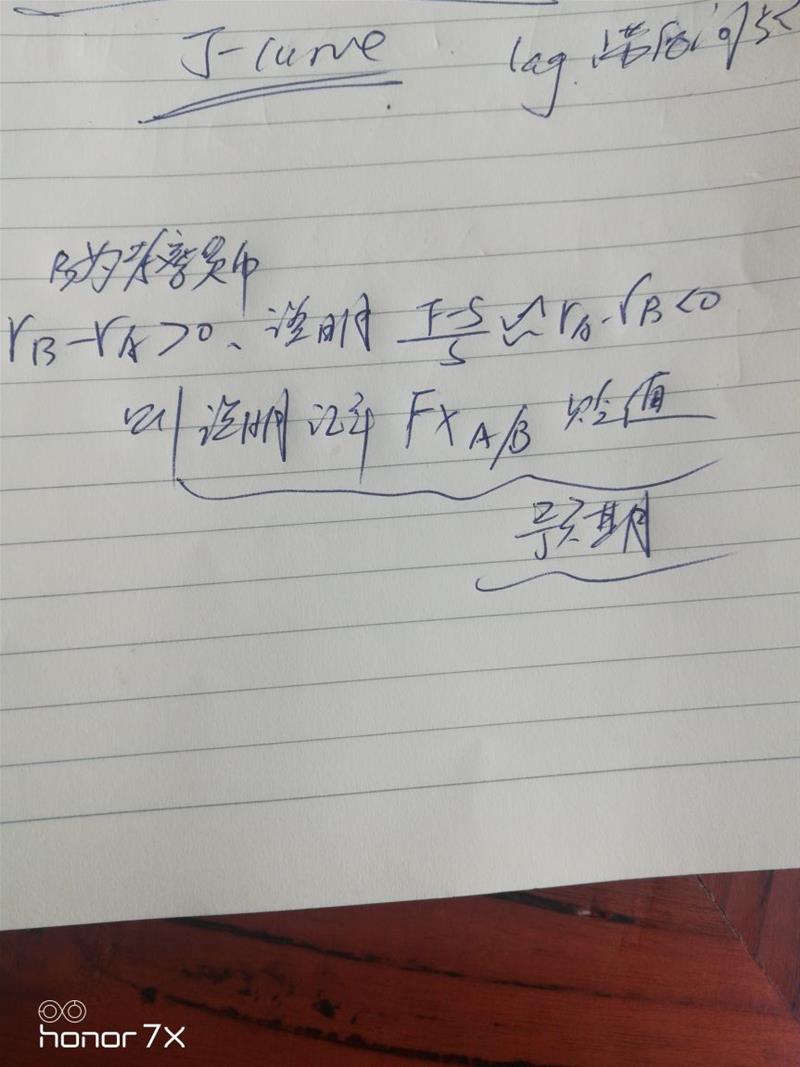 J-curve lag 滞后问题
B为高息货币
rB-rA>0、说明 F-S/S ≈ rA-rB<0
则 说明汇率 FX A/B 贬值
预期
honor 7X